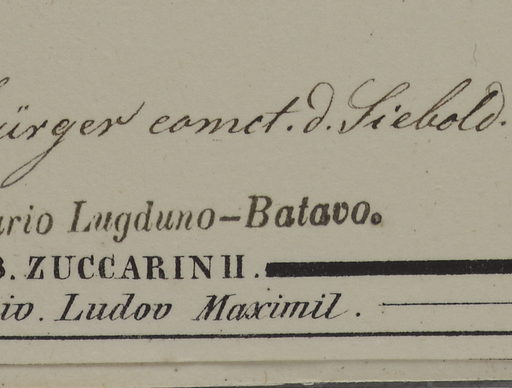 ürger comct. d. Siebold.
ario Lugduno-Batavo.
B. ZUCCARINII.
io. Ludov Maximil.